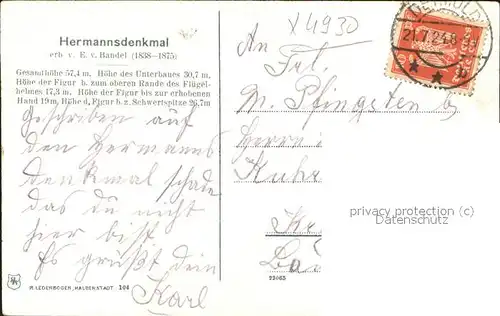 Hermannsdenkmal
erb v. E. v. Bandel (1838—1875)
Gesamthöhe 57,4 m. Höhe des Unterbaues 30,7 m,
Höhe der Figur b. zum oberen Rande des Flügel-
helmes 17,3 m. Höhe der Figur bis zur erhobenen
Hand 19 m, Höhe d. Figur b. z. Schwertspitze 26,7m
Geschrieben auf
den Hermanns
denkmal schade
das du nicht
hier bist
Es grüßt dein
Karl
R. LEDERBOGEN, HALBERSTADT. 104
X 4930
DETMOLD
21.7.24.8
An
Frl.
M. Pfingsten
Herrn
Kuhr
Kr
privacy protection (c)
Datenschutz
93065